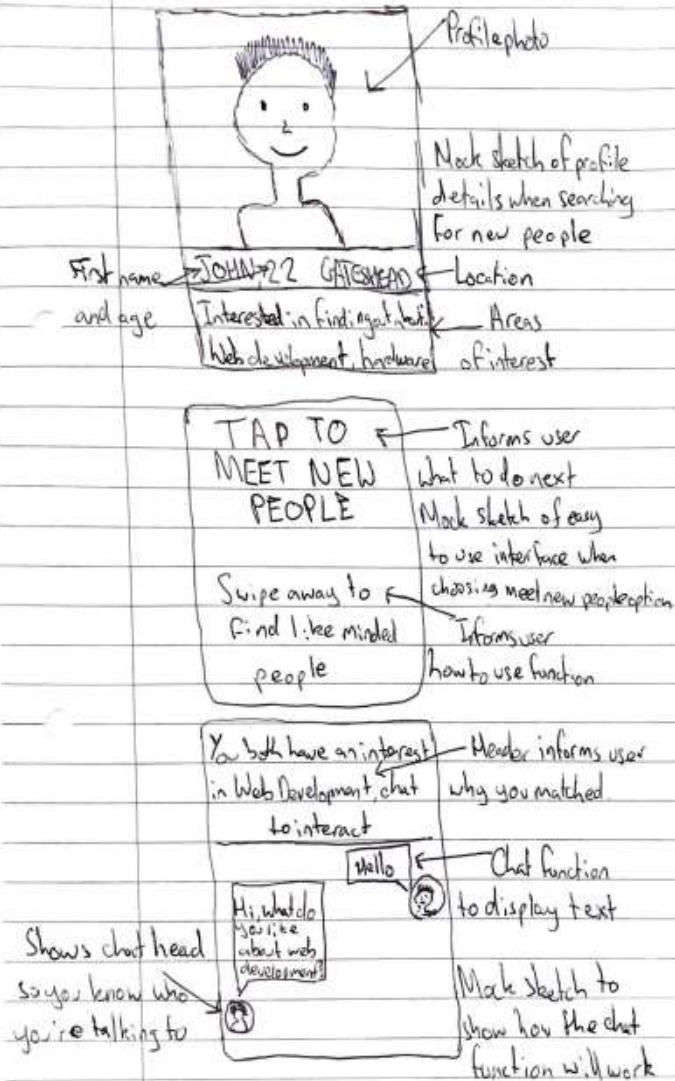 Profile photo
Mock sketch of profile
details when searching
for new people
First name
and age
JOHN, 22 GATESHEAD
Location
Interested in finding out about
Web development, hardware
Areas
of interest
TAP TO
MEET NEW
PEOPLE
Informs user
what to do next
Mock sketch of easy
to use interface when
choosing meet new people option
Swipe away to
find like minded
people
Informs user
how to use function
You both have an interest
in Web Development, chat
to interact
Header informs user
why you matched.
Hello
Chat function
to display text
Hi, what do
you like
about web
development?
Shows chat head
so you know who
you're talking to
Mock sketch to
show how the chat
function will work